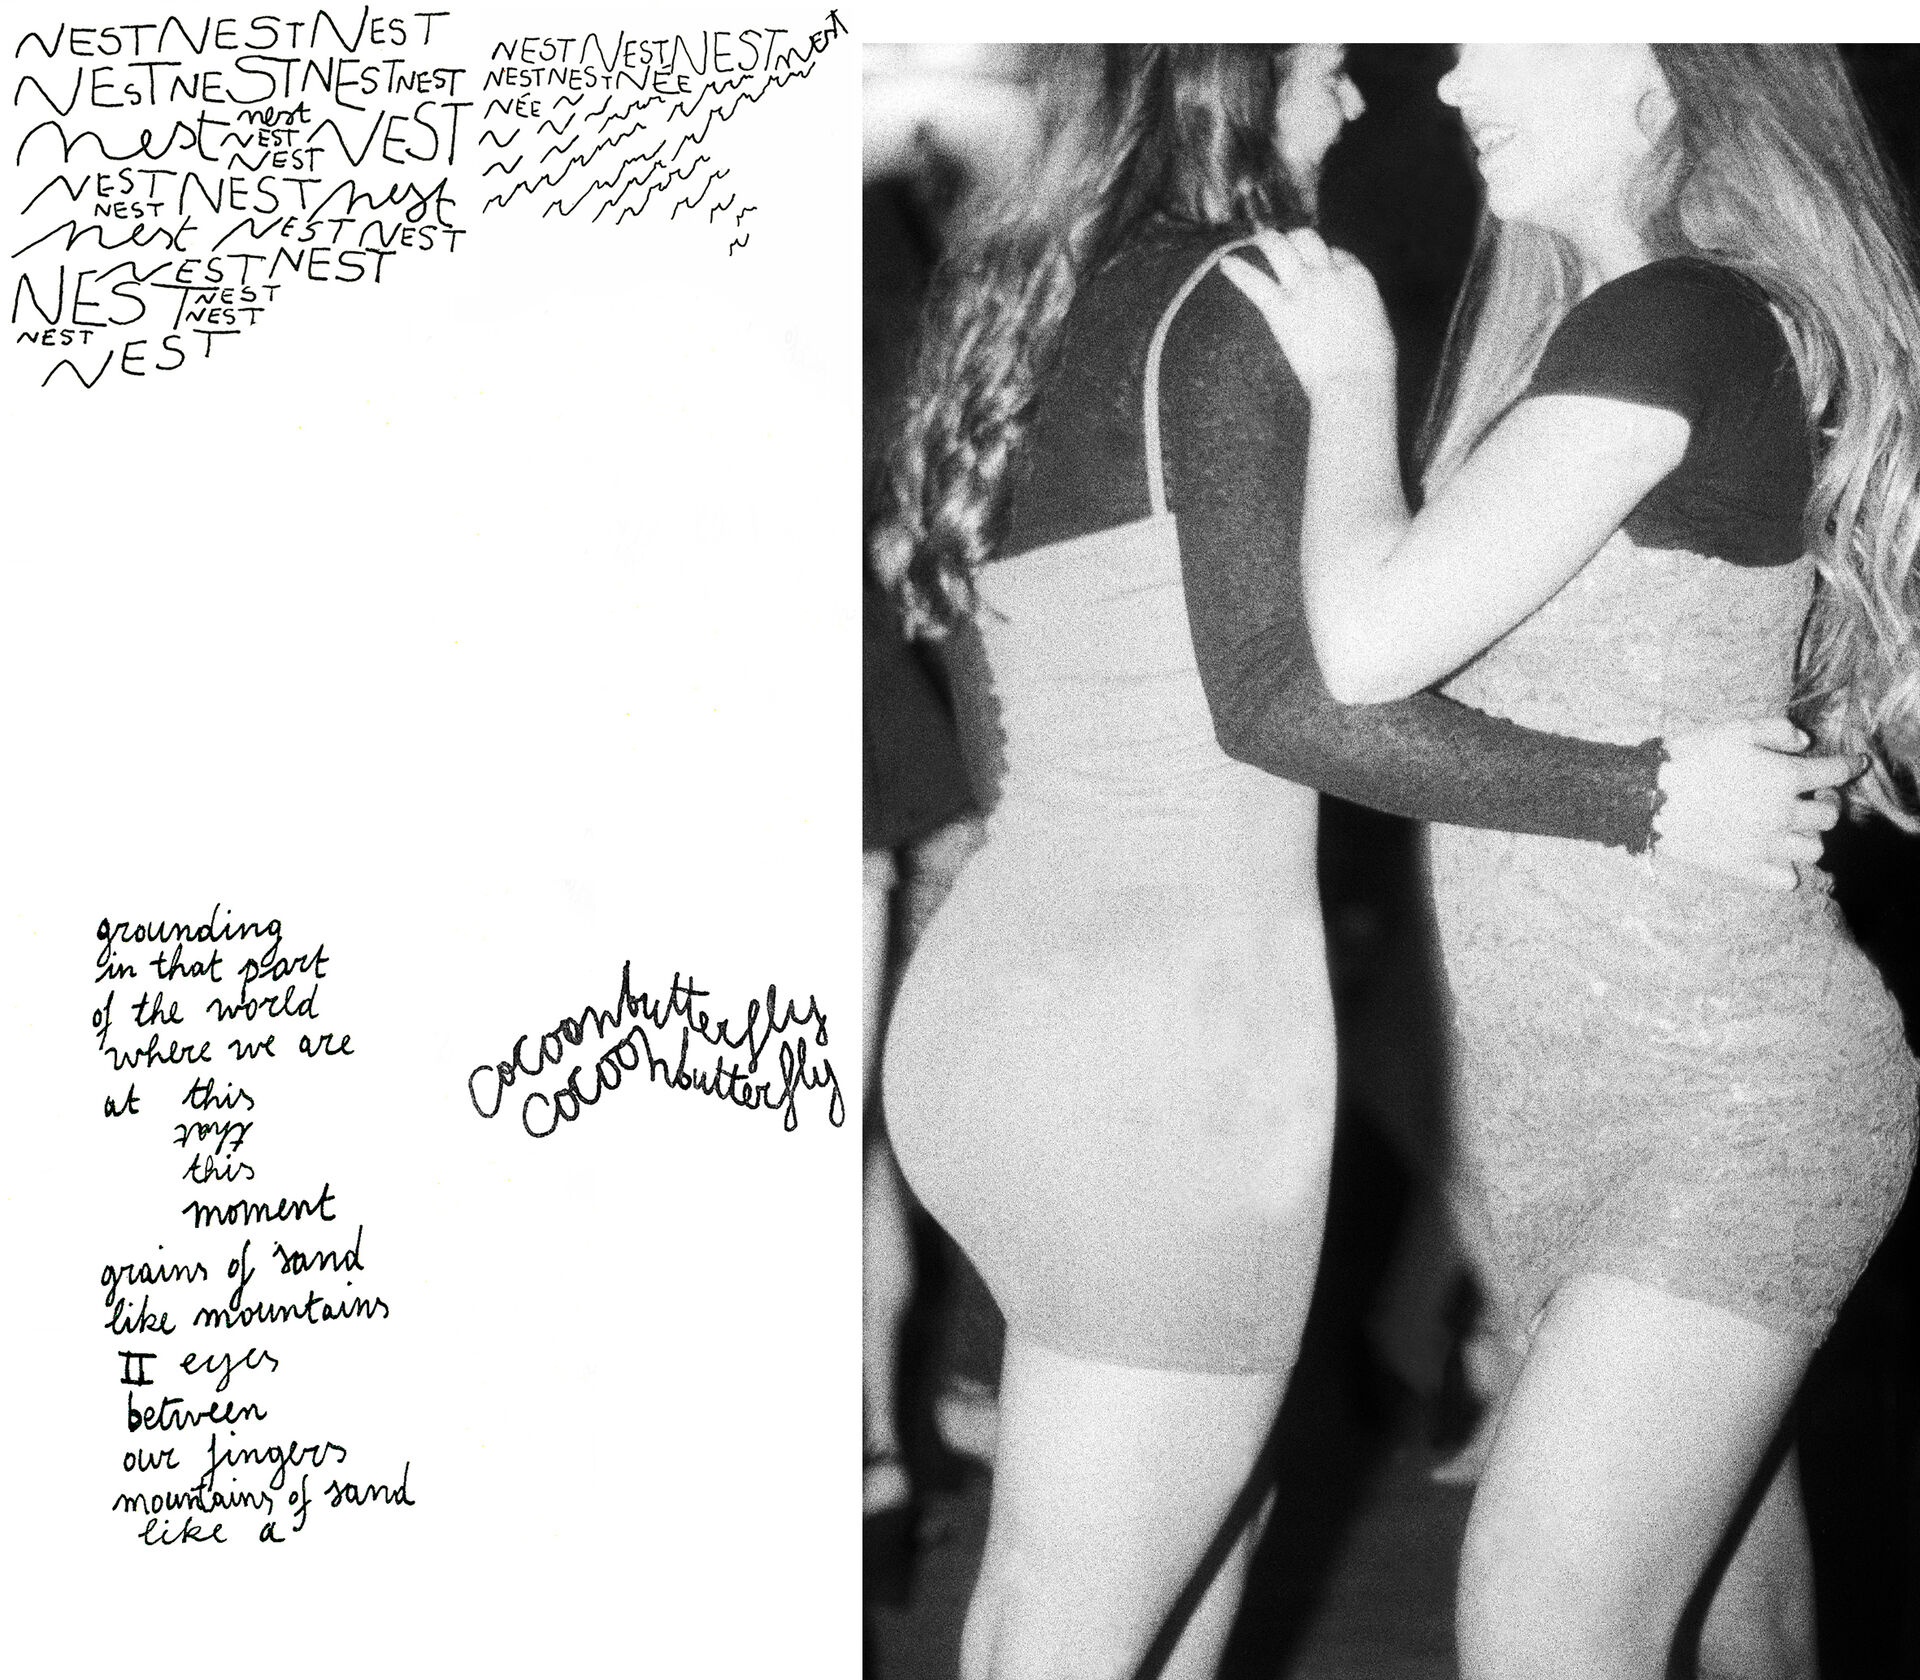 NESTNESTNEST
NESTNESTNESTNEST
nest nest NEST
NEST
NEST
NEST NEST nest
NEST
nest NEST NEST
NEST NEST NEST
NEST
NEST
NEST
NEST
NEST NEST NEST NEST
NEST NEST NÉE
NÉE
grounding
in that part
of the world
where we are
at this
that
this
moment
grains of sand
like mountains
II eyes
between
our fingers
mountains of sand
like a
cocoonbutterfly
cocoonbutterfly